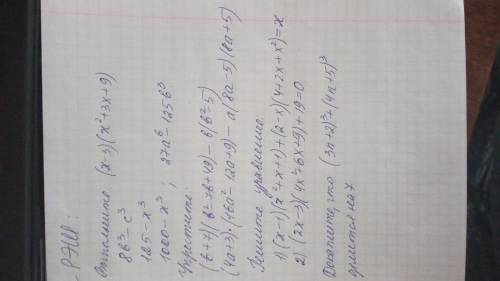 РЭШ:
Выполните: (x-3)(x²+3x+9)
8b³-c³
125-x³
1000-x³ ; 27a⁶-125b³
Упростите:
(b+7)(b²-7b+49)-b(b²-5)
(4a+3)·(16a²-12a+9)-a(8a-5)(8a+5)
Решите уравнение:
1) (x-1)(x²+x+1)+(2-x)(4+2x+x²)=x
2) (2x-3)(4x²+6x+9)+19=0
Докажите, что (3n+2)³+(4n+5)³
делится на 7